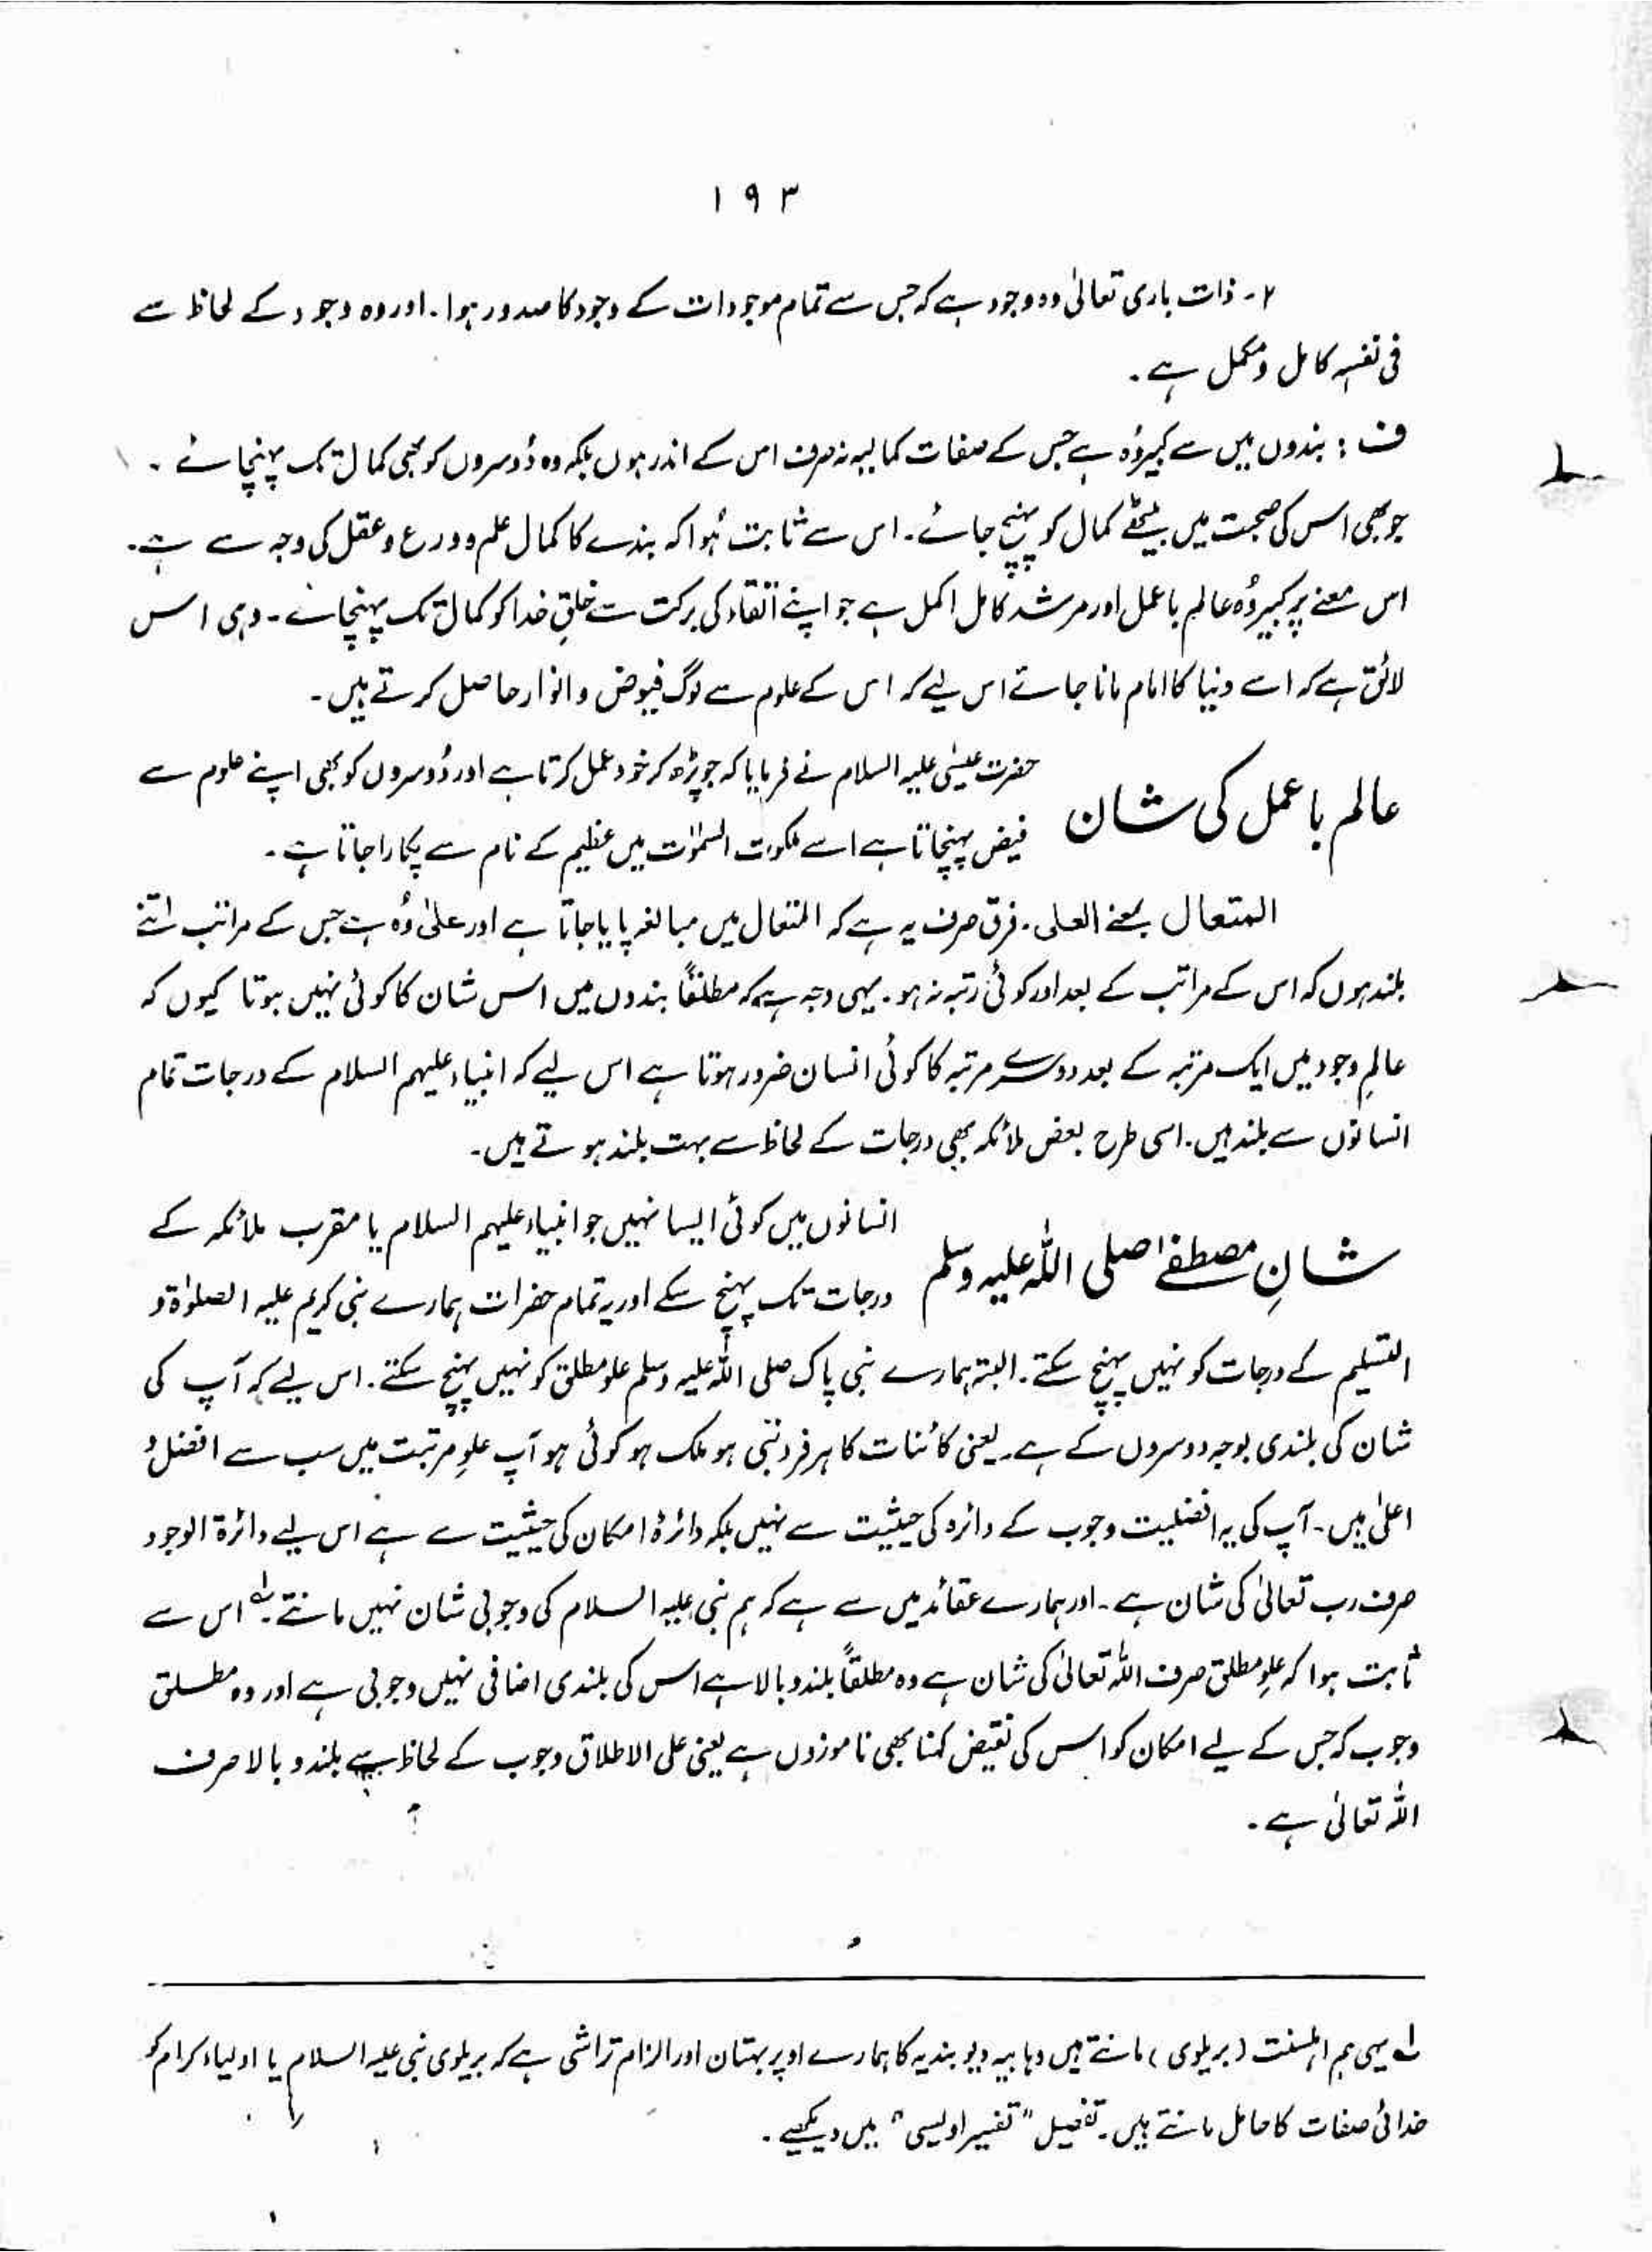 ۱۹۳
۲۔ ذات باری تعالیٰ وہ وجود ہے کہ جس سے تمام موجودات کے وجود کا صدور ہوا۔ اور وہ وجود کے لحاظ سے
فی نفسہٖ کامل و مکمل ہے۔
ف : بندوں میں سے کبیر وُہ ہے جس کے صفات کمالیہ نہ صرف اس کے اندر ہوں بلکہ وہ دُوسروں کو بھی کمال تک پہنچائے۔
جو بھی اس کی صحبت میں بیٹھے کمال کو پہنچ جائے۔ اس سے ثابت ہُوا کہ بندے کا کمال علم و ورع و عقل کی وجہ سے ہے۔
اس معنے پر کبیر وُہ عالمِ باعمل اور مرشد کامل اکمل ہے جو اپنے اتقاء کی برکت سے خلقِ خدا کو کمال تک پہنچائے۔ وہی اس
لائق ہے کہ اسے دنیا کا امام مانا جائے اس لیے کہ اس کے علوم سے لوگ فیوض و انوار حاصل کرتے ہیں۔
عالم باعمل کی شان
حضرت عیسٰی علیہ السلام نے فرمایا کہ جو پڑھ کر خود عمل کرتا ہے اور دُوسروں کو بھی اپنے علوم سے
فیض پہنچاتا ہے اسے ملکوت السمٰوٰت میں عظیم کے نام سے پکارا جاتا ہے۔
المتعال بمعنے العلی۔ فرق صرف یہ ہے کہ المتعال میں مبالغہ پایا جاتا ہے اور علیٰ وُہ ہے جس کے مراتب اتنے
بلند ہوں کہ اس کے مراتب کے بعد اور کوئی رتبہ نہ ہو۔ یہی وجہ ہے کہ مطلقاً بندوں میں اس شان کا کوئی نہیں ہوتا کیوں کہ
عالمِ وجود میں ایک مرتبہ کے بعد دوسرے مرتبہ کا کوئی انسان ضرور ہوتا ہے اس لیے کہ انبیاء علیہم السلام کے درجات تمام
انسانوں سے بلند ہیں۔ اسی طرح بعض ملائکہ بھی درجات کے لحاظ سے بہت بلند ہوتے ہیں۔
شانِ مصطفےٰ صلی اللہ علیہ وسلم
انسانوں میں کوئی ایسا نہیں جو انبیاء علیہم السلام یا مقرب ملائکہ کے
درجات تک پہنچ سکے اور یہ تمام حضرات ہمارے نبی کریم علیہ الصلوٰۃ و
التسلیم کے درجات کو نہیں پہنچ سکتے۔ البتہ ہمارے نبی پاک صلی اللہ علیہ وسلم علو مطلق کو نہیں پہنچ سکتے۔ اس لیے کہ آپ کی
شان کی بلندی بوجہ دوسروں کے ہے۔ یعنی کائنات کا ہر فرد نبی ہو ملک ہو کوئی ہو آپ علوِ مرتبت میں سب سے افضل و
اعلیٰ ہیں۔ آپ کی یہ افضلیت وجوب کے دائرہ کی حیثیت سے نہیں بلکہ دائرۂ امکان کی حیثیت سے ہے اس لیے دائرۃ الوجود
صرف رب تعالیٰ کی شان ہے۔ اور ہمارے عقائد میں سے ہے کہ ہم نبی علیہ السلام کی وجوبی شان نہیں مانتے۔ لے اس سے
ثابت ہوا کہ علوِ مطلق صرف اللہ تعالیٰ کی شان ہے وہ مطلقاً بلند و بالا ہے اس کی بلندی اضافی نہیں وجوبی ہے اور وہ مطلق
وجوب کہ جس کے لیے امکان کو اس کی نقیض کہنا بھی ناموزوں ہے یعنی علی الاطلاق وجوب کے لحاظ سے بلند و بالا صرف
اللہ تعالیٰ ہے۔
لے یہی ہم اہلسنت (بریلوی) مانتے ہیں وہابیہ دیوبندیہ کا ہمارے اوپر بہتان اور الزام تراشی ہے کہ بریلوی نبی علیہ السلام یا اولیاء کرام کو
خدائی صفات کا حامل مانتے ہیں۔ تفصیل "تفسیر اویسی" میں دیکھیے۔